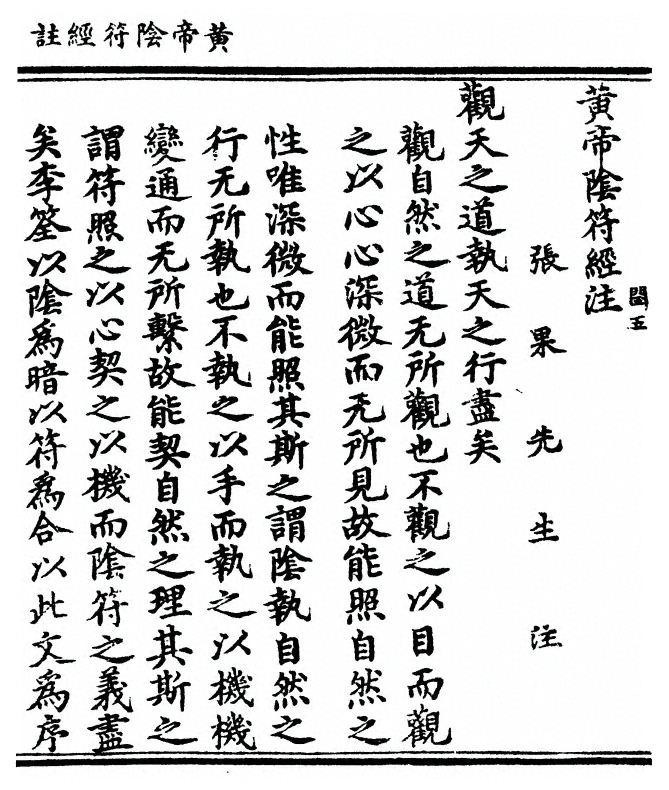 黃帝陰符經註
黃帝陰符經注 閏五
張果先生注
觀天之道執天之行盡矣
觀自然之道无所觀也不觀之以目而觀
之以心心深微而无所見故能照自然之
性唯深微而能照其斯之謂陰執自然之
行无所執也不執之以手而執之以機機
變通而无所繫故能契自然之理其斯之
謂符照之以心契之以機而陰符之義盡
矣李筌以陰爲暗以符爲合以此文爲序